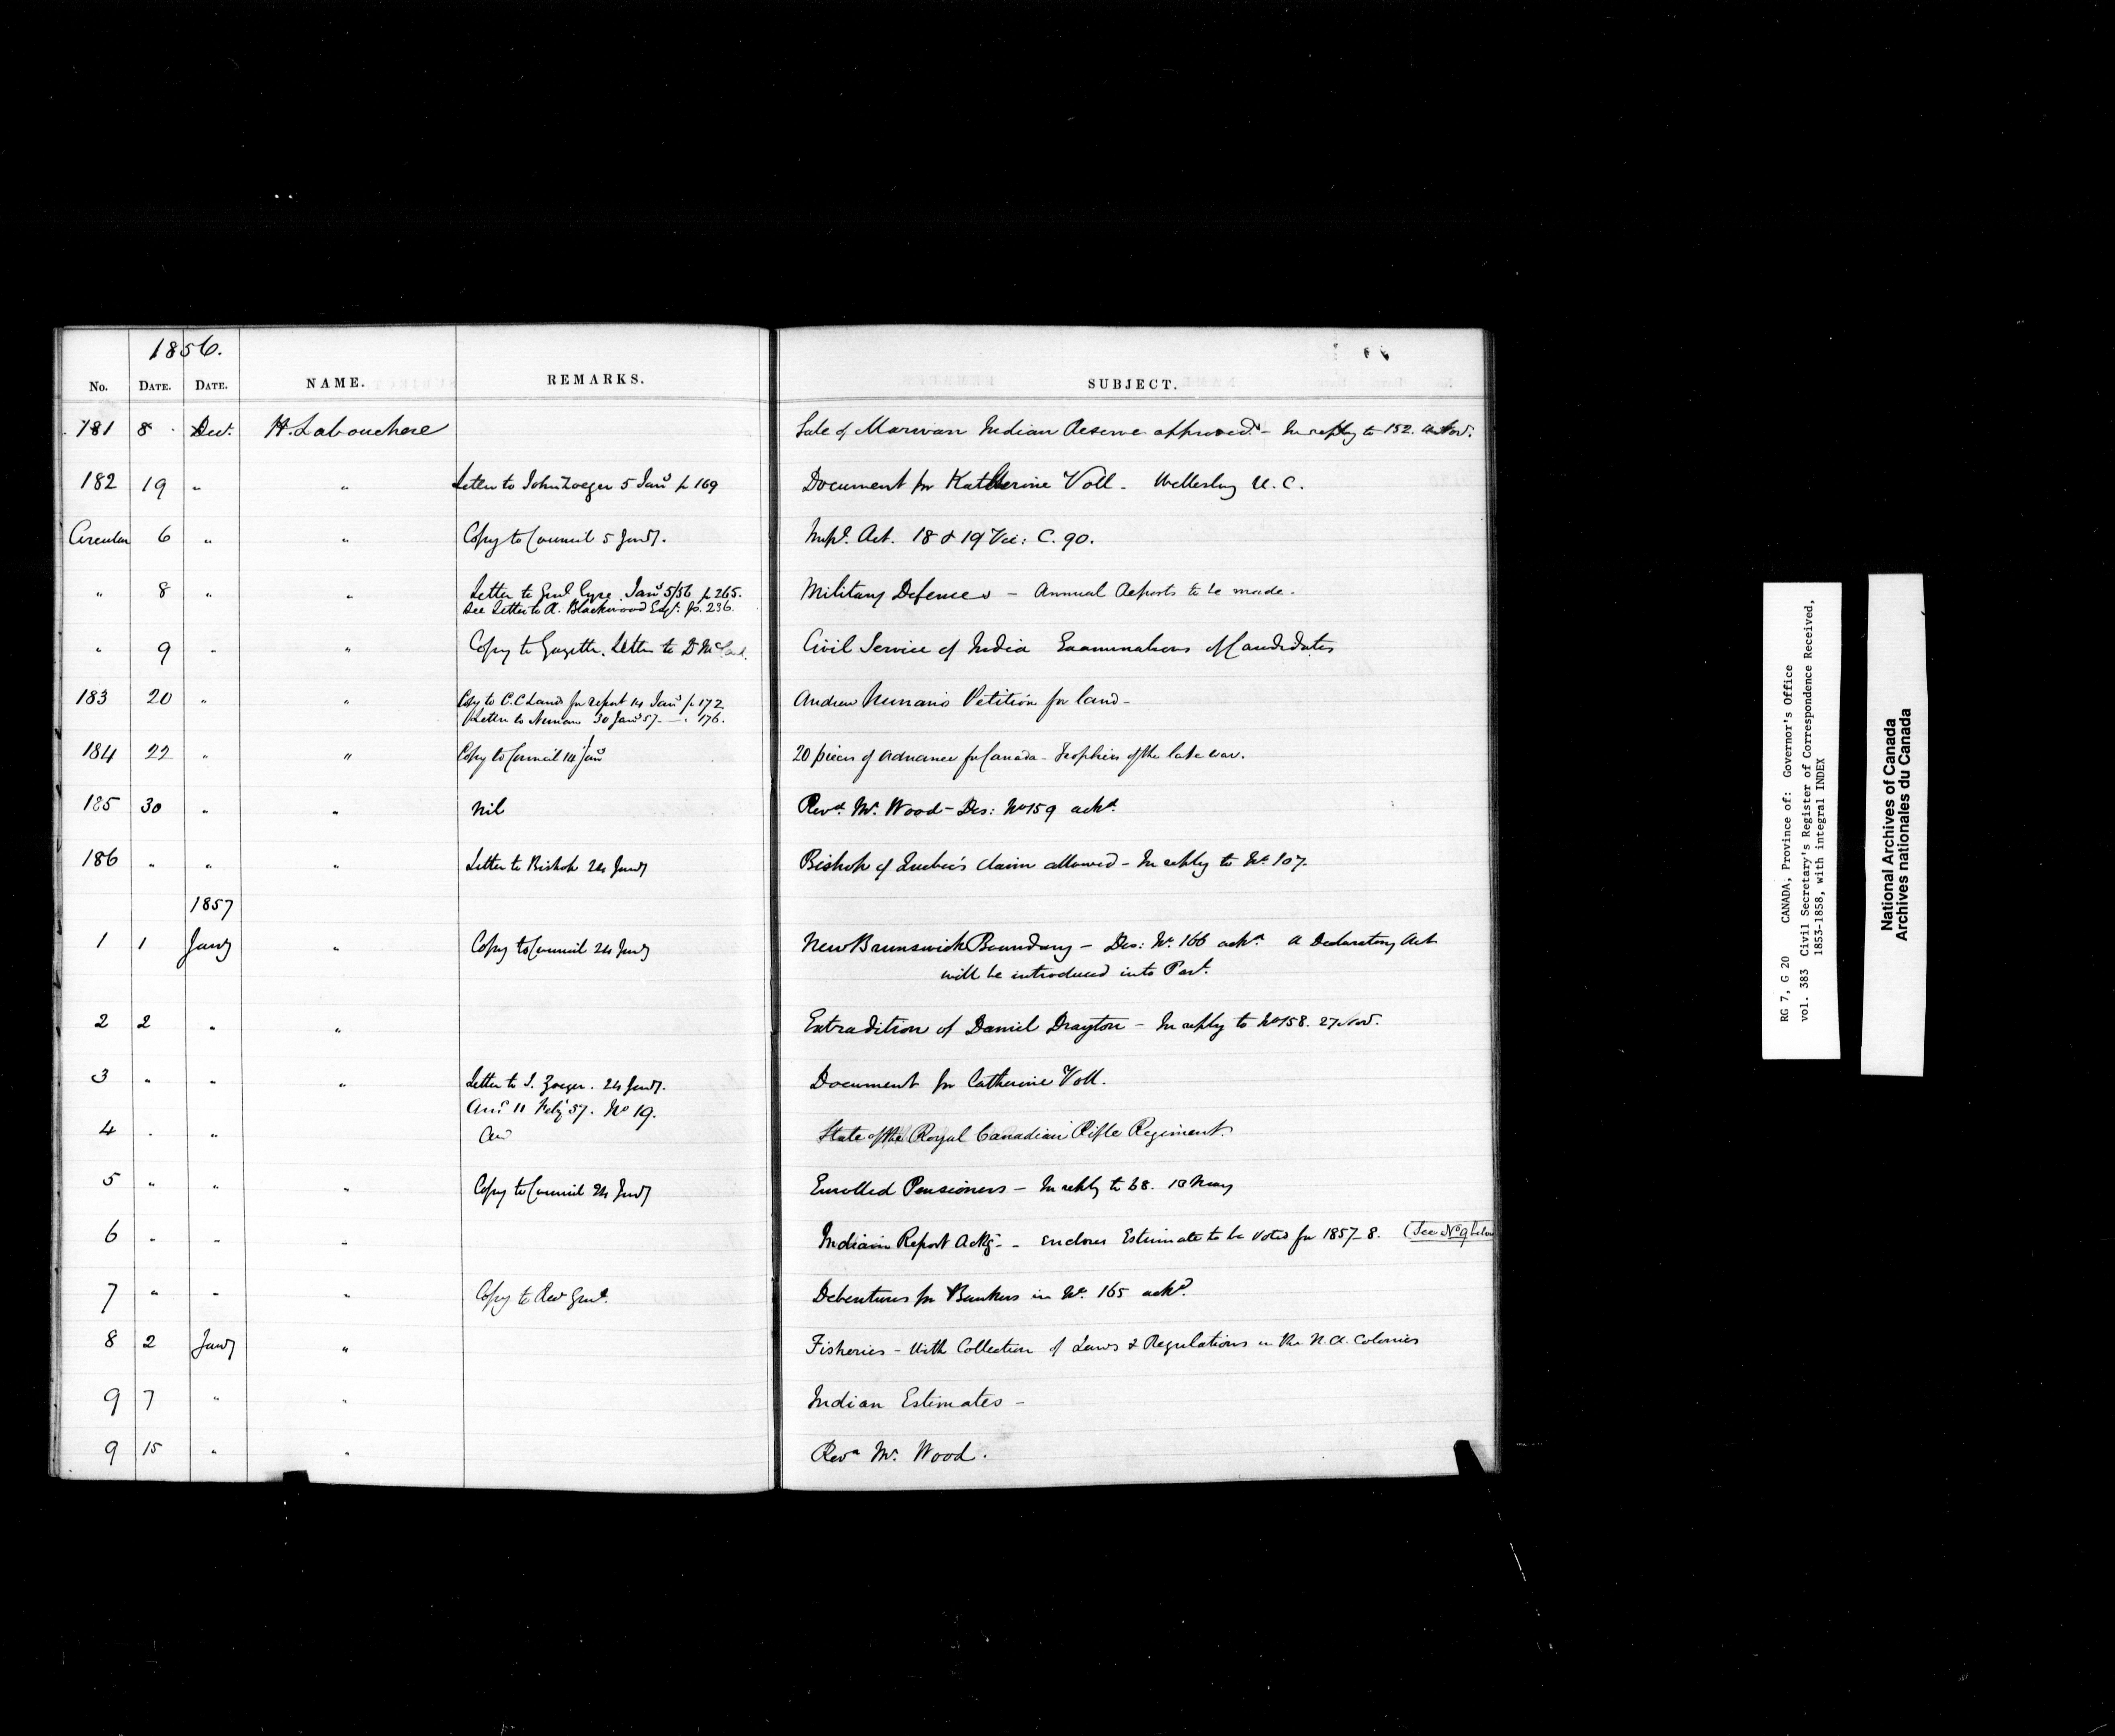 1856.
No. DATE. DATE. NAME. REMARKS. SUBJECT.
181 8 Dec. H. Labouchere Sale of Indian Reserve approved. - In reply to 152. Nov.
182 19 " " Letter to John Zoeger 5 Jany p 169 Document for Katherine Voll - Wellesley U.C.
Circular 6 " " Copy to Council 5 Jany. Impl. Act. 18 & 19 Vic: C. 90.
" 8 " " Letter to Genl Eyre. Jany 5/56 p 265. Military Defences - Annual Reports to be made -
See Letter to A. Blackwood Esqr. fo. 236.
" 9 " " Copy to Gazette. Letter to D Civil Service of India Examinations of Candidates
183 20 " " Copy to C.C Lands for report 14 Jany p 172 Andrew Petition for land -
Letter to 30 Jany 57 - . 176.
184 22 " " Copy to Council 14 Jany 20 pieces of for Canada - Trophies of the late war.
185 30 " " Nil Revd. Mr. Wood - Des: No 159 ackd.
186 " " " Letter to Bishop 24 Jany Bishop of Quebec's claim allowed - In reply to No. 107.
1857
1 1 Jany " Copy to Council 24 Jany New Brunswick Boundary - Des: No. 166 ackd. A Declaratory Act
will be introduced into Part.
2 2 " " Extradition of Daniel Drayton - In reply to No 158. 27 Nov.
3 " " " Letter to J. Zoeger. 24 Jany. Document for Catherine Voll.
Ansd 11 Feby 57. No 19.
4 " " State of the Royal Canadian Rifle Regiment.
5 " " " Copy to Council 24 Jany Enrolled Pensioners - In reply to 68. May
6 " " " Indian Report Ackg - encloses Estimate to be voted for 1857-8. (See No 9 below
7 " " " Copy to Genl. Debentures for Bankers in No. 165 ackd.
8 2 Jany " Fisheries - With Collection of Laws & Regulations in the N.A. Colonies
9 7 " " Indian Estimates -
9 15 " " Revd Mr. Wood.
RG 7, G 20 CANADA, Province of: Governor's Office
vol. 383 Civil Secretary's Register of Correspondence Received,
1853-1858, with integral INDEX
National Archives of Canada
Archives nationales du Canada